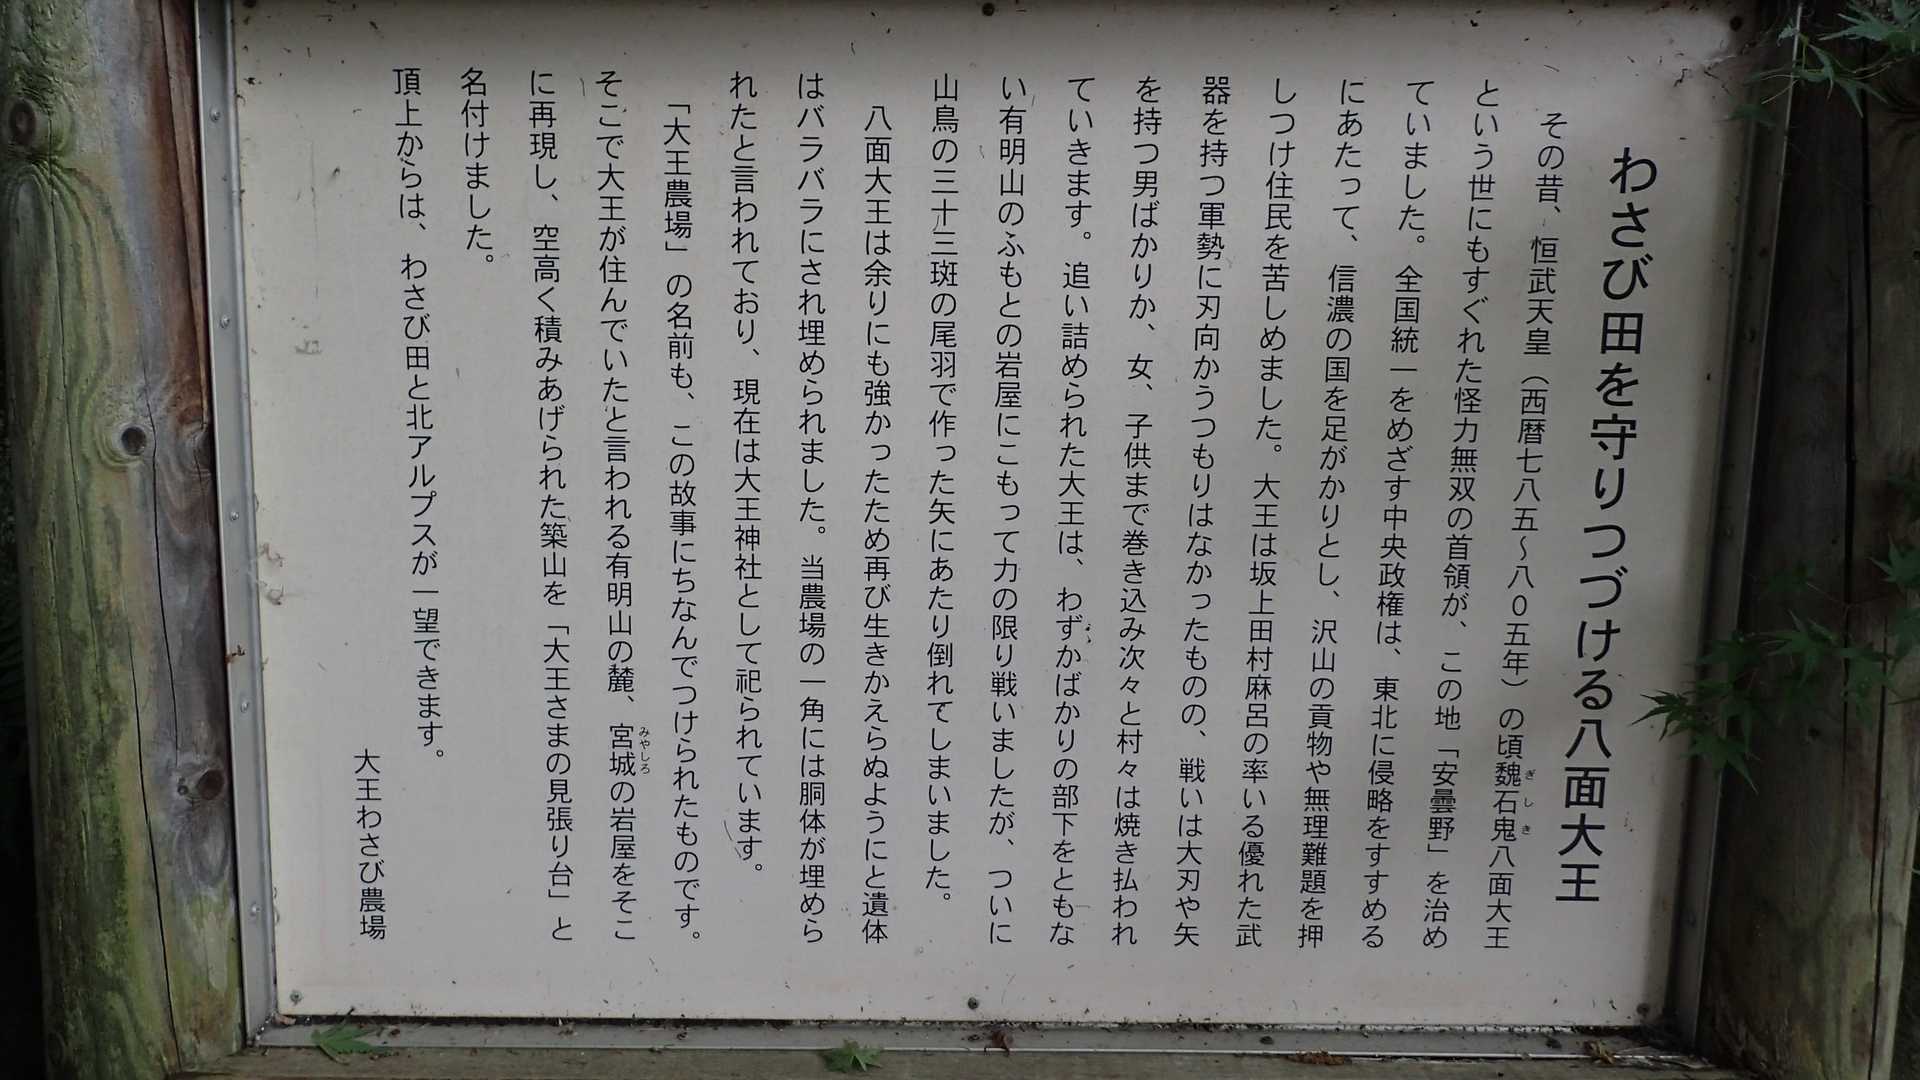 わさび田を守りつづける八面大王
その昔、恒武天皇（西暦七八五～八０五年）の頃魏石鬼八面大王
ぎしき
という世にもすぐれた怪力無双の首領が、この地「安曇野」を治め
ていました。全国統一をめざす中央政権は、東北に侵略をすすめる
にあたって、信濃の国を足がかりとし、沢山の貢物や無理難題を押
しつけ住民を苦しめました。大王は坂上田村麻呂の率いる優れた武
器を持つ軍勢に刃向かうつもりはなかったものの、戦いは大刃や矢
を持つ男ばかりか、女、子供まで巻き込み次々と村々は焼き払われ
ていきます。追い詰められた大王は、わずかばかりの部下をともな
い有明山のふもとの岩屋にこもって力の限り戦いましたが、ついに
山鳥の三十三斑の尾羽で作った矢にあたり倒れてしまいました。
八面大王は余りにも強かったため再び生きかえらぬようにと遺体
はバラバラにされ埋められました。当農場の一角には胴体が埋めら
れたと言われており、現在は大王神社として祀られています。
「大王農場」の名前も、この故事にちなんでつけられたものです。
そこで大王が住んでいたと言われる有明山の麓、宮城の岩屋をそこ
みやしろ
に再現し、空高く積みあげられた築山を「大王さまの見張り台」と
名付けました。
頂上からは、わさび田と北アルプスが一望できます。
大王わさび農場